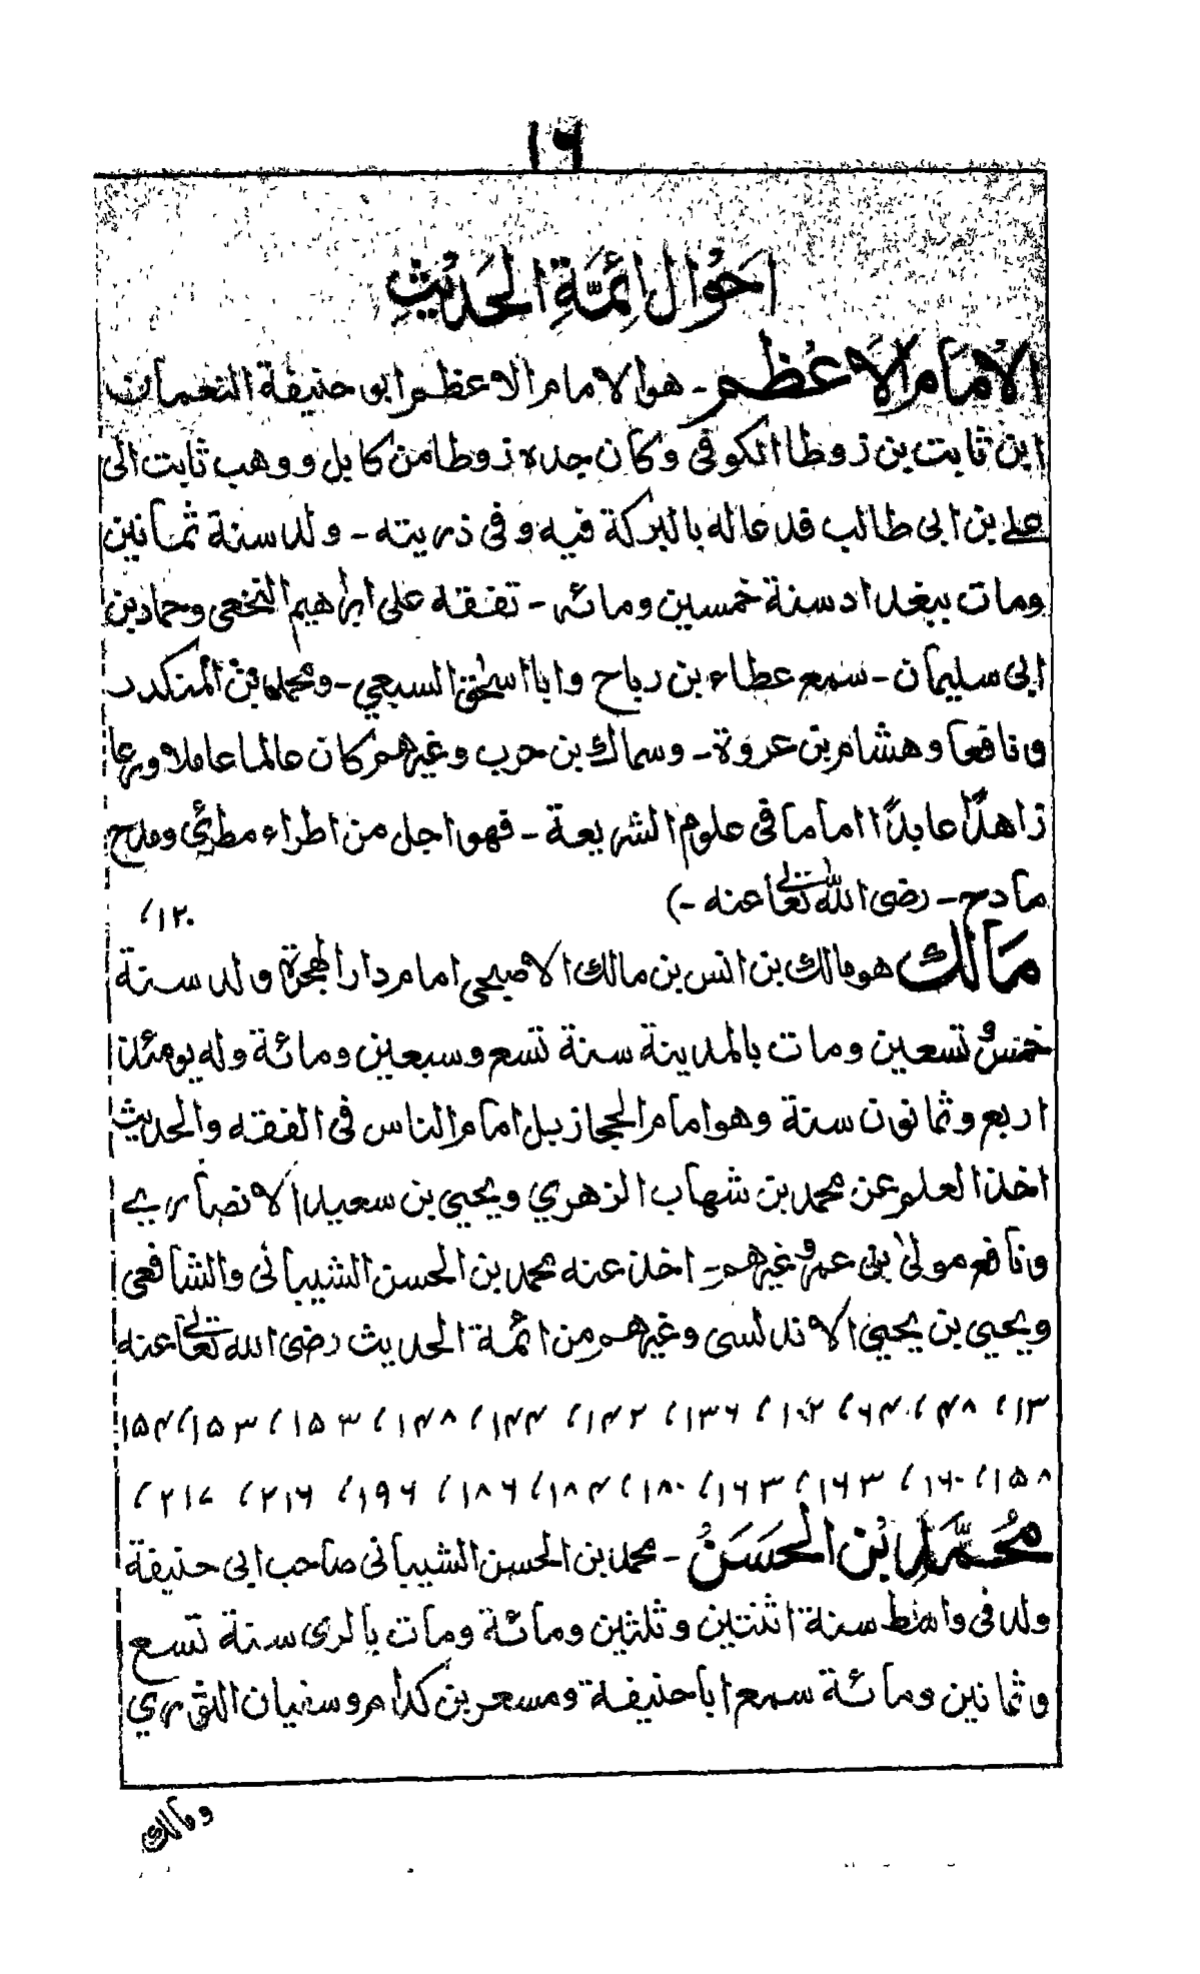 ۱۶
اَحْوَال اَئِمَّةِ الْحَدِيْثِ
الْاِمَام الْاَعْظَم - هو الامام الاعظم ابو حنيفة النعمان
ابن ثابت بن زوطا الكوفى وكان جده زوطا من كابل ووهب ثابت الى
على بن ابى طالب قد عا له بالبركة فيه وفى ذريته - ولد سنة ثمانين
ومات ببغداد سنة خمسين ومائه - تفقه على ابراهيم النخعى وحماد بن
ابى سليمان - سمع عطاء بن رباح وابا اسحٰق السبيعي - ومحمد بن المنكدر
ونافعا وهشام بن عروة - وسماك بن حرب وغيرهم كان عالما عاملا ورعا
زاهدًا عابدًا اماما فى علوم الشريعة - فهو اجل من اطراء مطرئ ومدح
مادح - رضى الله تعالى عنه -) ۱۲۰/
مَالِك هو مالك بن انس بن مالك الاصبحى امام دار الهجرة ولد سنة
خمس وتسعين ومات بالمدينة سنة تسع وسبعين ومائة وله يومئذ
اربع وثمانون سنة وهو امام الحجاز بل امام الناس فى الفقه والحديث
اخذ العلم عن محمد بن شهاب الزهري ويحيى بن سعيد الانصاري
ونافع مولىٰ بنى عمر وغيرهم - اخذ عنه محمد بن الحسن الشيبانى والشافعى
ويحيى بن يحيىٰ الاندلسى وغيرهم من ائمة الحديث رضى الله تعالى عنه
۱۳/ ۴۸/ ۶۴/ ۱۰۲/ ۱۳۶/ ۱۴۲/ ۱۴۴/ ۱۴۸/ ۱۵۳/ ۱۵۳/ ۱۵۴
۱۵۸/ ۱۶۰/ ۱۶۳/ ۱۶۳/ ۱۸۰/ ۱۸۴/ ۱۸۶/ ۱۹۶/ ۲۱۶/ ۲۱۷/
مُحَمَّد بْن الْحَسَنُ - محمد بن الحسن الشيبانى صاحب ابى حنيفة
ولد فى واسط سنة اثنتين وثلثين ومائة ومات بالرى سنة تسع
وثمانين ومائة سمع ابا حنيفة ومسعر بن كدام وسفيان الثوري
ومالك